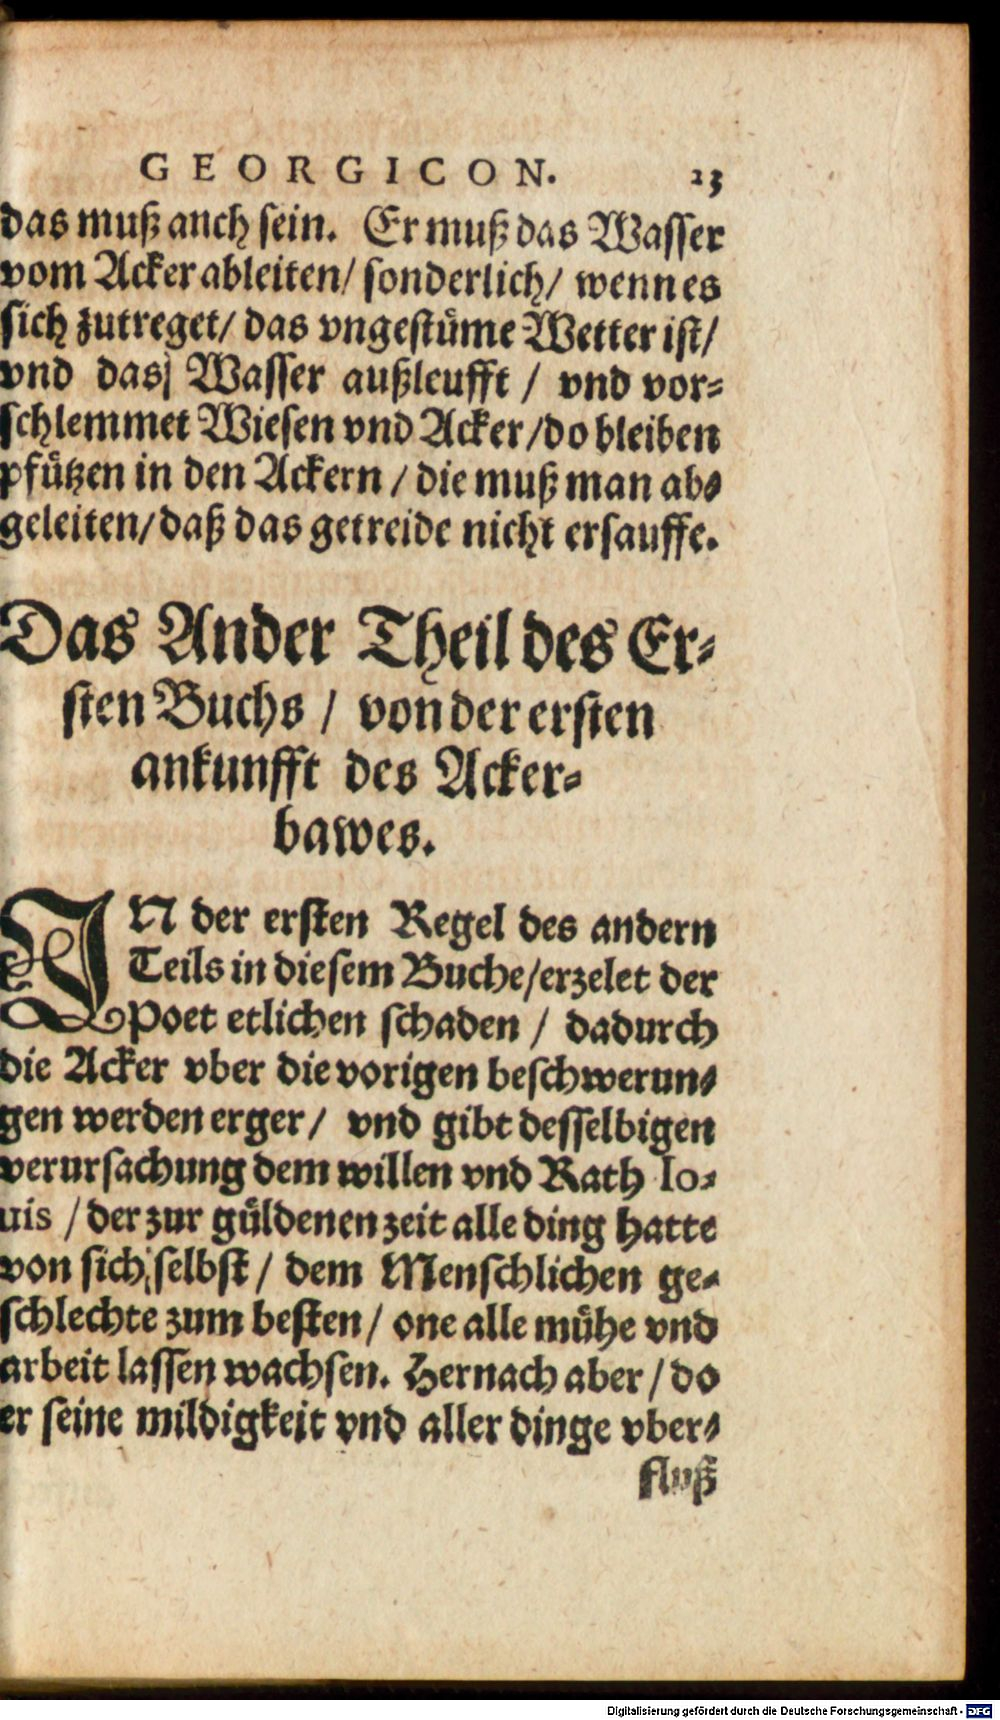 GEORGICON. 23
das muß anch sein. Er muß das Wasser
vom Acker ableiten/ sonderlich/ wenn es
sich zutreget/ das vngestüme Wetter ist/
vnd das Wasser außleufft / vnd vor-
schlemmet Wiesen vnd Acker/do bleiben
pfützen in den Ackern / die muß man ab-
geleiten/daß das getreide nicht ersauffe.
Das Ander Theil des Er-
sten Buchs / von der ersten
ankunfft des Acker-
bawes.
IN der ersten Regel des andern
Teils in diesem Buche/erzelet der
Poet etlichen schaden / dadurch
die Acker vber die vorigen beschwerun-
gen werden erger/ vnd gibt desselbigen
verursachung dem willen vnd Rath Io-
uis /der zur güldenen zeit alle ding hatte
von sich selbst / dem Menschlichen ge-
schlechte zum besten/ one alle mühe vnd
arbeit lassen wachsen. Hernach aber / do
er seine mildigkeit vnd aller dinge vber-
fluß
Digitalisierung gefördert durch die Deutsche Forschungsgemeinschaft - DFG